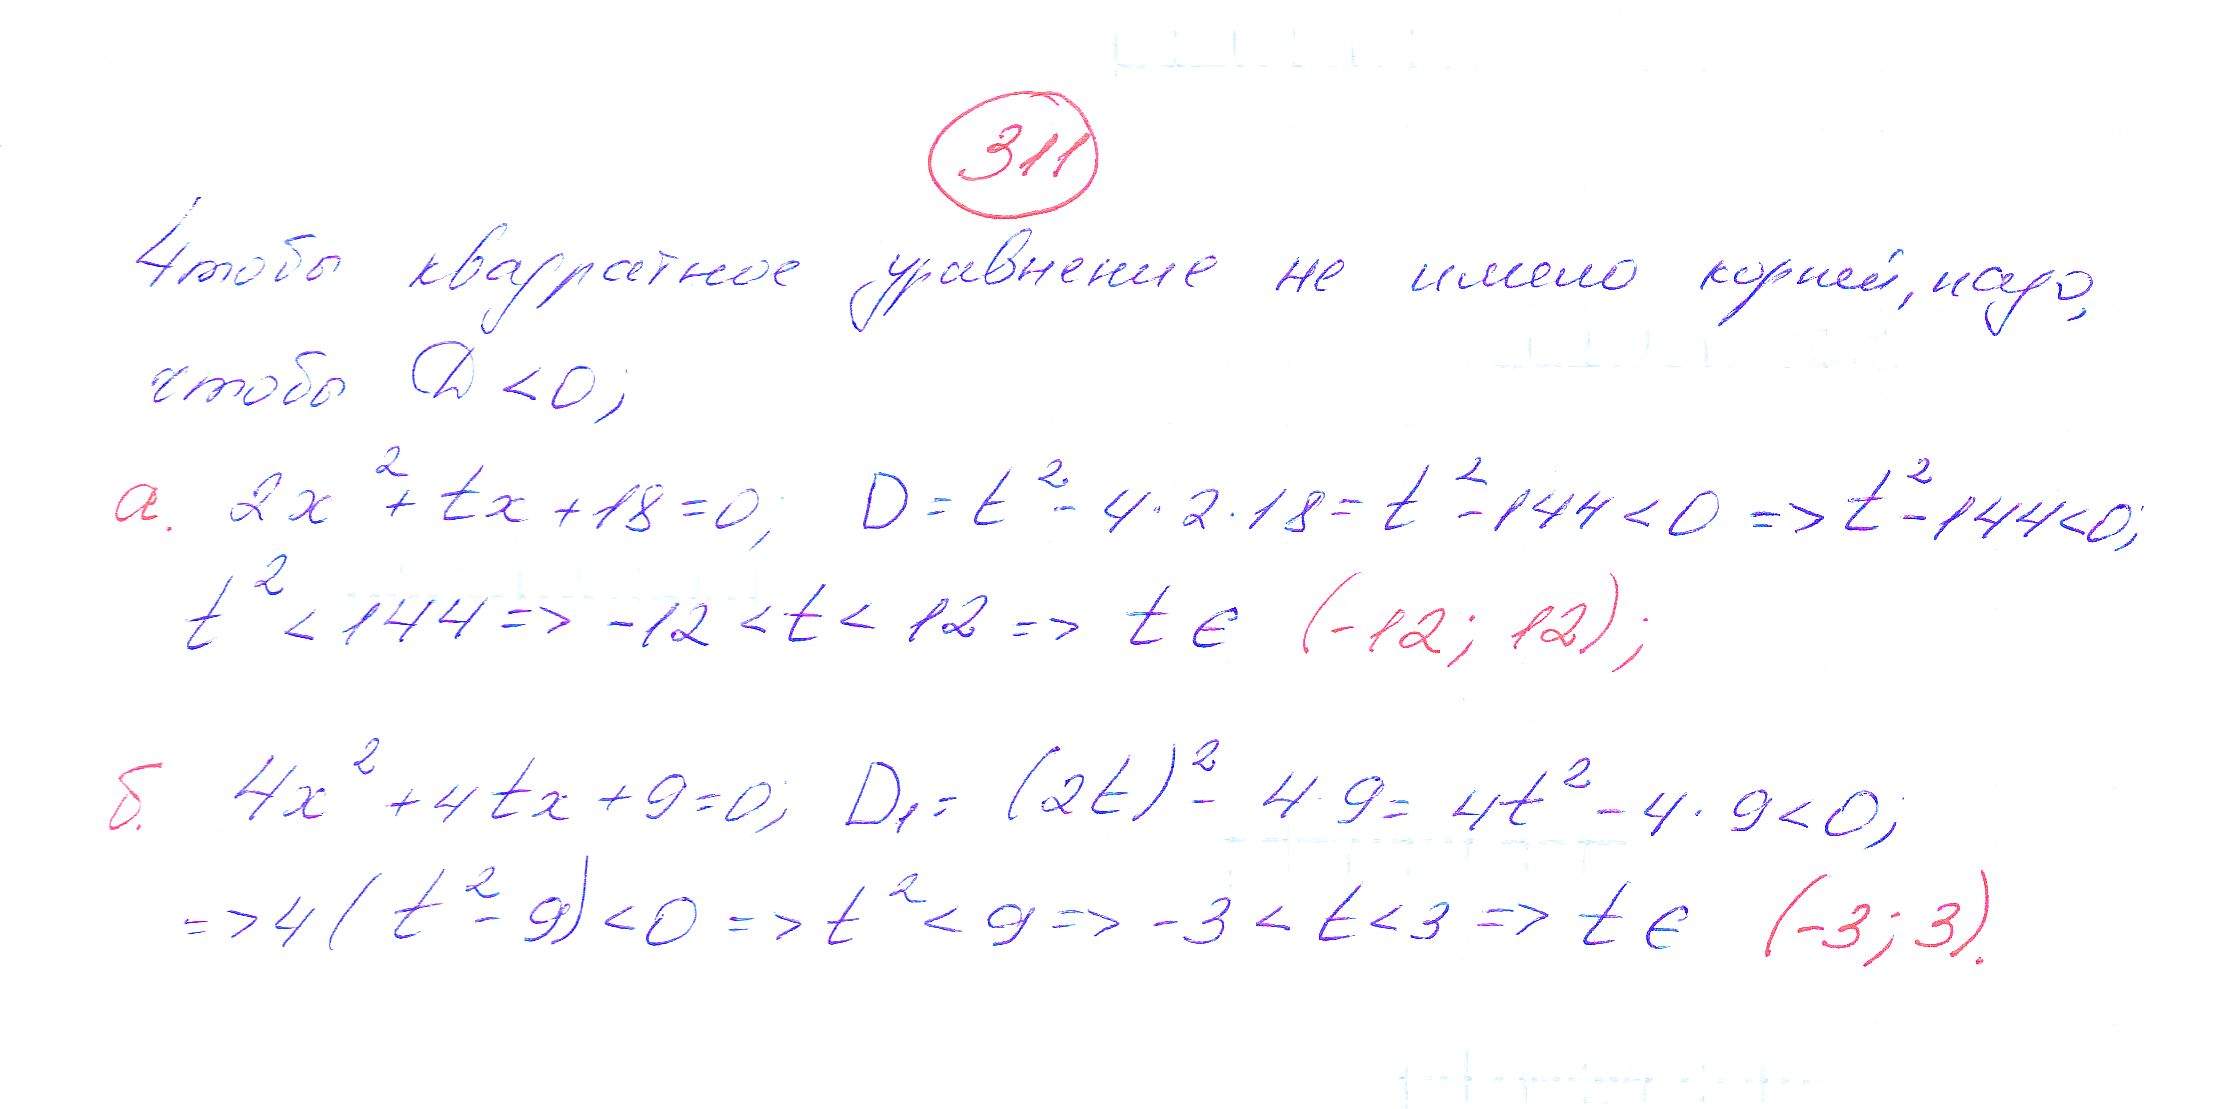 311
Чтобы квадратное уравнение не имело корней, надо,
чтобы D < 0;
а. 2x² + tx + 18 = 0; D = t² - 4 · 2 · 18 = t² - 144 < 0 => t² - 144 < 0;
t² < 144 => -12 < t < 12 => t ∈ (-12; 12);
б. 4x² + 4tx + 9 = 0; D₁ = (2t)² - 4 · 9 = 4t² - 4 · 9 < 0;
=> 4(t² - 9) < 0 => t² < 9 => -3 < t < 3 => t ∈ (-3; 3).